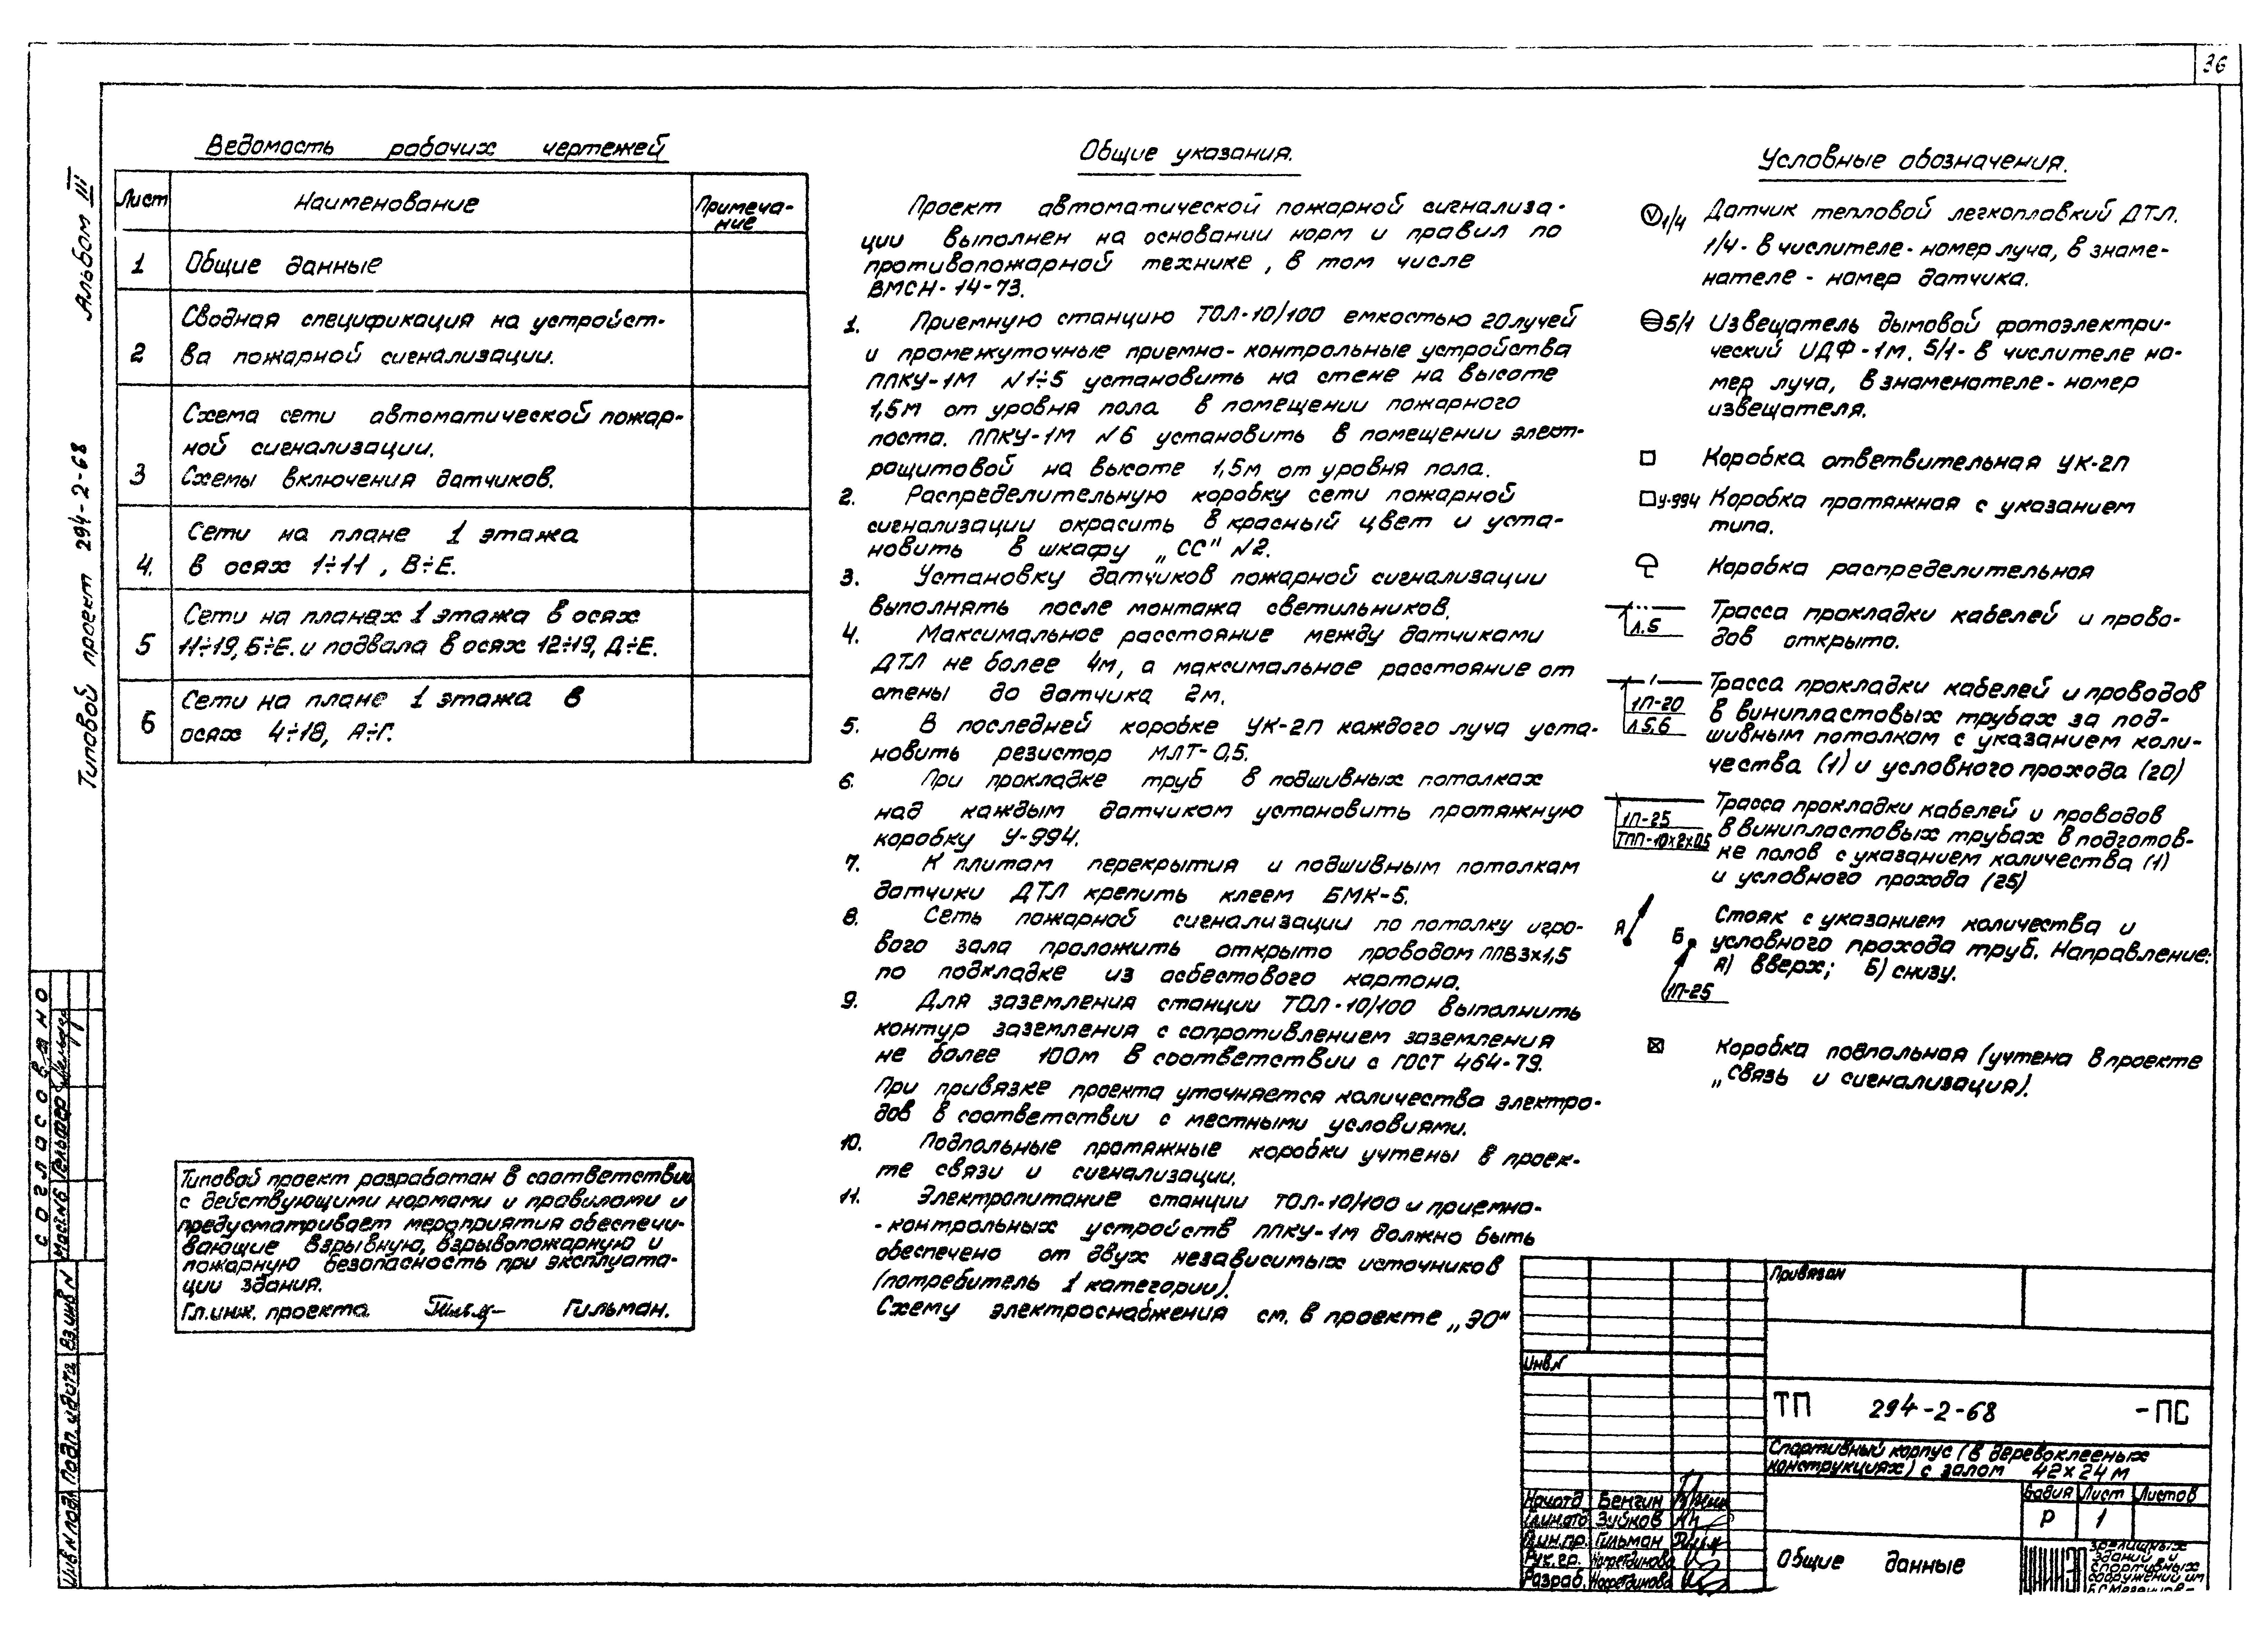 36
Альбом III
Типовой проект 294-2-68
Ведомость рабочих чертежей
Лист
Наименование
Примеча-
ние
1
Общие данные
Сводная спецификация на устройст-
2
ва пожарной сигнализации.
Схема сети автоматической пожар-
ной сигнализации.
3
Схемы включения датчиков.
Сети на плане 1 этажа
4.
в осях 1÷11, В÷Е.
Сети на планах 1 этажа в осях
5
11÷19, Б÷Е. и подвала в осях 12÷19, Д÷Е.
Сети на плане 1 этажа в
6
осях 4÷18, А÷Г.
Типовой проект разработан в соответствии
с действующими нормами и правилами и
предусматривает мероприятия обеспечи-
вающие взрывную, взрывопожарную и
пожарную безопасность при эксплуата-
ции здания.
Гл.инж. проекта Гильман.
Общие указания.
Проект автоматической пожарной сигнализа-
ции выполнен на основании норм и правил по
противопожарной технике, в том числе
ВМСН-14-73.
1. Приемную станцию ТОЛ-10/100 емкостью 20 лучей
и промежуточные приемно-контрольные устройства
ППКУ-1М N1÷5 установить на стене на высоте
1,5м от уровня пола в помещении пожарного
поста. ППКУ-1М N6 установить в помещении элект-
рощитовой на высоте 1,5м от уровня пола.
2. Распределительную коробку сети пожарной
сигнализации окрасить в красный цвет и уста-
новить в шкафу „СС" N2.
3. Установку датчиков пожарной сигнализации
выполнять после монтажа светильников.
4. Максимальное расстояние между датчиками
ДТЛ не более 4м, а максимальное расстояние от
стены до датчика 2м.
5. В последней коробке УК-2П каждого луча уста-
новить резистор МЛТ-0,5.
6. При прокладке труб в подшивных потолках
над каждым датчиком установить протяжную
коробку У-994.
7. К плитам перекрытия и подшивным потолкам
датчики ДТЛ крепить клеем БМК-5.
8. Сеть пожарной сигнализации по потолку игро-
вого зала проложить открыто проводом ППВ3х1,5
по подкладке из асбестового картона.
9. Для заземления станции ТОЛ-10/100 выполнить
контур заземления с сопротивлением заземления
не более 10Ом в соответствии с ГОСТ 464-79.
При привязке проекта уточняется количества электро-
дов в соответствии с местными условиями.
10. Подпольные протяжные коробки учтены в проек-
те связи и сигнализации.
11. Электропитание станции ТОЛ-10/100 и приемно-
-контрольных устройств ППКУ-1м должно быть
обеспечено от двух независимых источников
(потребитель 1 категории).
Схему электроснабжения см. в проекте „ЭО"
Условные обозначения.
1/4 Датчик тепловой легкоплавкий ДТЛ.
1/4- в числителе - номер луча, в знаме-
нателе - номер датчика.
5/1 Извещатель дымовой фотоэлектри-
ческий ИДФ-1м. 5/1- в числителе но-
мер луча, в знаменателе - номер
извещателя.
Коробка ответвительная УК-2П
У-994 Коробка протяжная с указанием
типа.
Коробка распределительная
Трасса прокладки кабелей и прово-
дов открыто.
Л.5
Трасса прокладки кабелей и проводов
в винипластовых трубах за под-
шивным потолком с указанием коли-
чества (1) и условного прохода (20)
1П-20
Л5,6
Трасса прокладки кабелей и проводов
в винипластовых трубах в подготов-
ке полов с указанием количества (1)
и условного прохода (25)
1П-25
ТПП-10х2х0,5
Стояк с указанием количества и
условного прохода труб. Направление:
А) вверх; Б) снизу.
А
Б
1П-25
Коробка подпольная (учтена в проекте
„Связь и сигнализация).
Согласовано
Маст.N6 Гельфер
Вз.инв N
Подп. и дата
Инв N подл.
Привязан
Инв.N
ТП 294-2-68 -ПС
Спортивный корпус (в деревоклееных
конструкциях) с залом 42х24м
Стадия Лист Листов
Р 1
Общие данные
Нач.отд Бенгин
Гл.ин.отд Зубков
Гл.ин.пр. Гильман
Рук.гр. Нафетдинова
Разраб. Нафетдинова
ЦНИИЭП
зрелищных
зданий и
спортивных
сооружений им